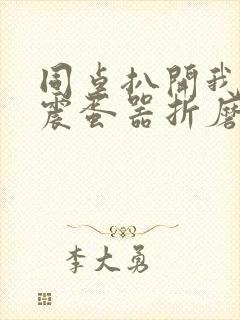 同桌扒開我
震蛋器折磨
李大勇